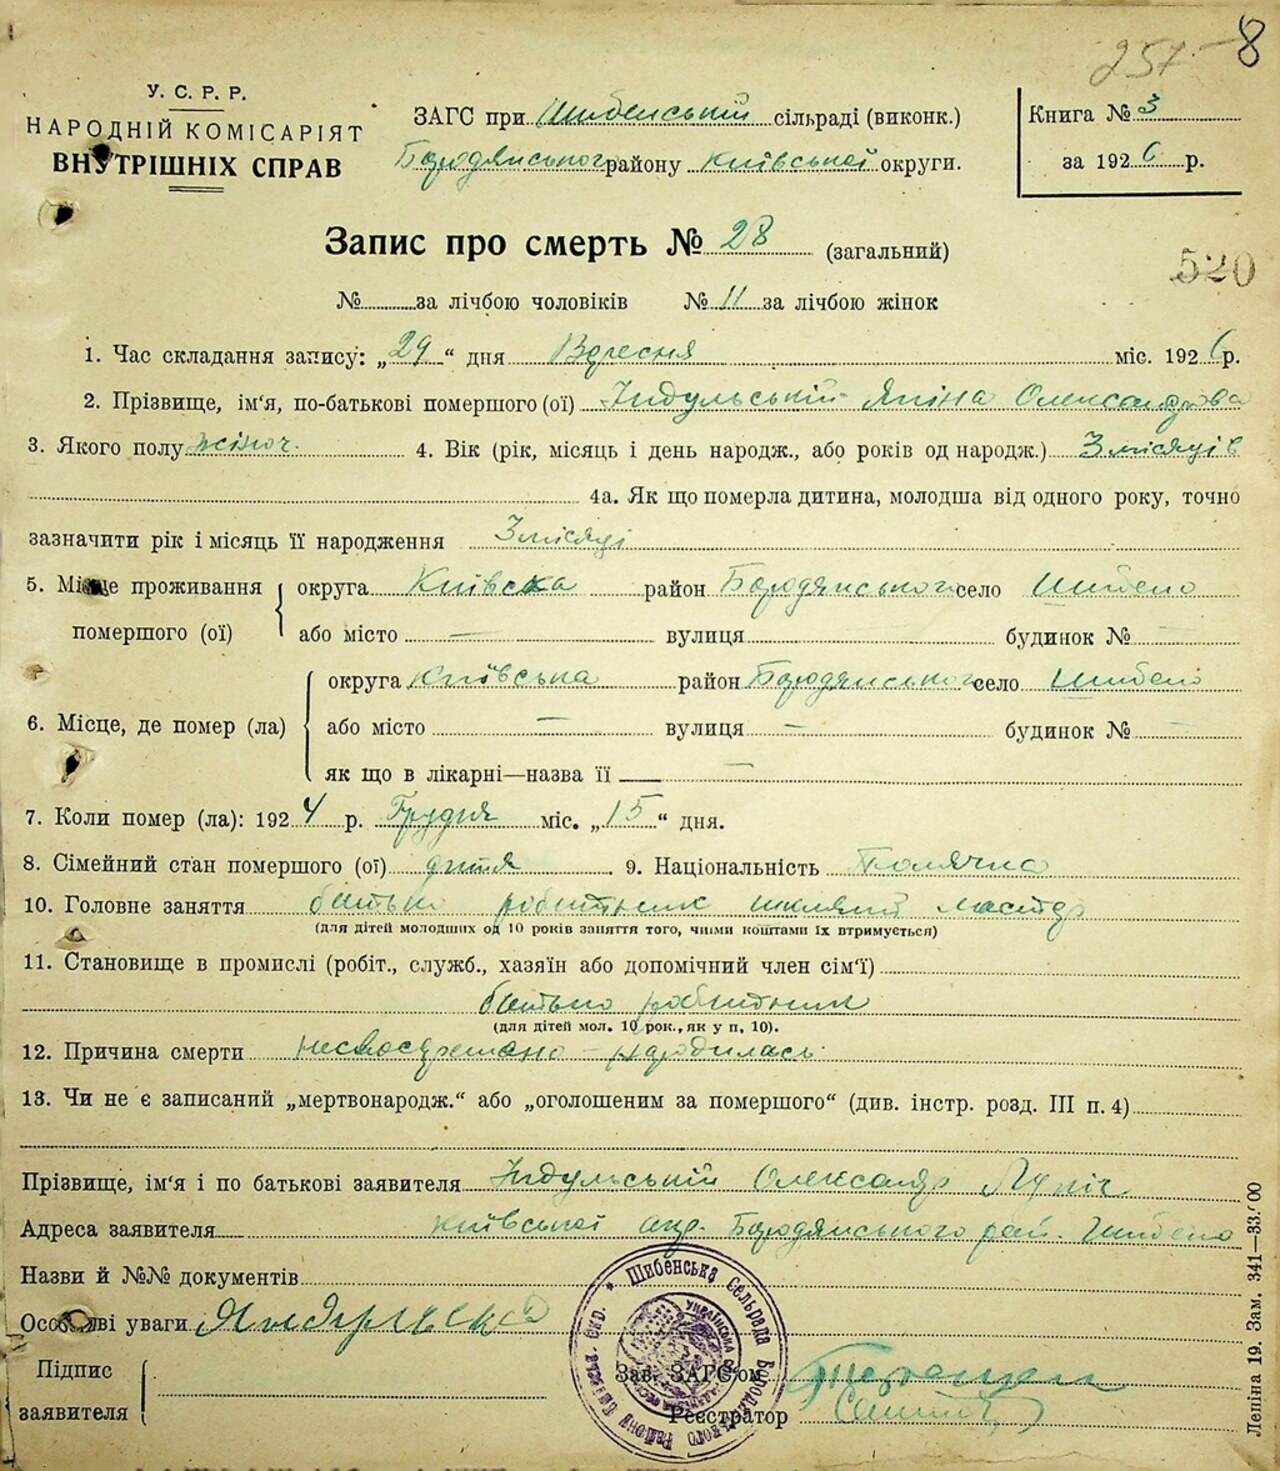 257 8
У. С. Р. Р.
НАРОДНІЙ КОМІСАРІЯТ
ВНУТРІШНІХ СПРАВ
ЗАГС при Шибенській сільраді (виконк.)
Бородянського району Київської округи.
Книга № 3
за 1926 р.
Запис про смерть № 28 (загальний)
520
№ за лічбою чоловіків № 11 за лічбою жінок
1. Час складання запису: „29“ дня Вересня міс. 1926 р.
2. Прізвище, ім‘я, по-батькові помершого (ої) Індульській Яніна Олександрова
3. Якого полу жіноч. 4. Вік (рік, місяць і день народж., або років од народж.) 3 місяців
4а. Як що померла дитина, молодша від одного року, точно
зазначити рік і місяць її народження 3 місяці
5. Місце проживання помершого (ої) округа Київска район Бородянського село Шибено
або місто — вулиця будинок №
6. Місце, де помер (ла) округа Київська район Бородянського село Шибено
або місто — вулиця — будинок № —
як що в лікарні—назва її —
7. Коли помер (ла): 1924 р. Грудня міс. „15“ дня.
8. Сімейний стан помершого (ої) дитя 9. Національність Полячка
10. Головне заняття батько робітник шкляний мастер
(для дітей молодших од 10 років заняття того, чиїми коштами їх втримується)
11. Становище в промислі (робіт., служб., хазяїн або допомічний член сім‘ї)
батько робидник
(для дітей мол. 10 рок., як у п. 10).
12. Причина смерти — народилась
13. Чи не є записаний „мертвонародж.“ або „оголошеним за помершого“ (див. інстр. розд. III п. 4)
Прізвище, ім‘я і по батькові заявителя Індульській Олександр
Адреса заявителя Київської окр. Бородянського рай. Шибено
Назви й №№ документів
Особливі уваги
Підпис
заявителя
Шибенська сельрада Бородянського Району Київськ. Окр.
Зав. ЗАГС‘ом
Реєстратор
Леніна 19. Зам. 341—33.000